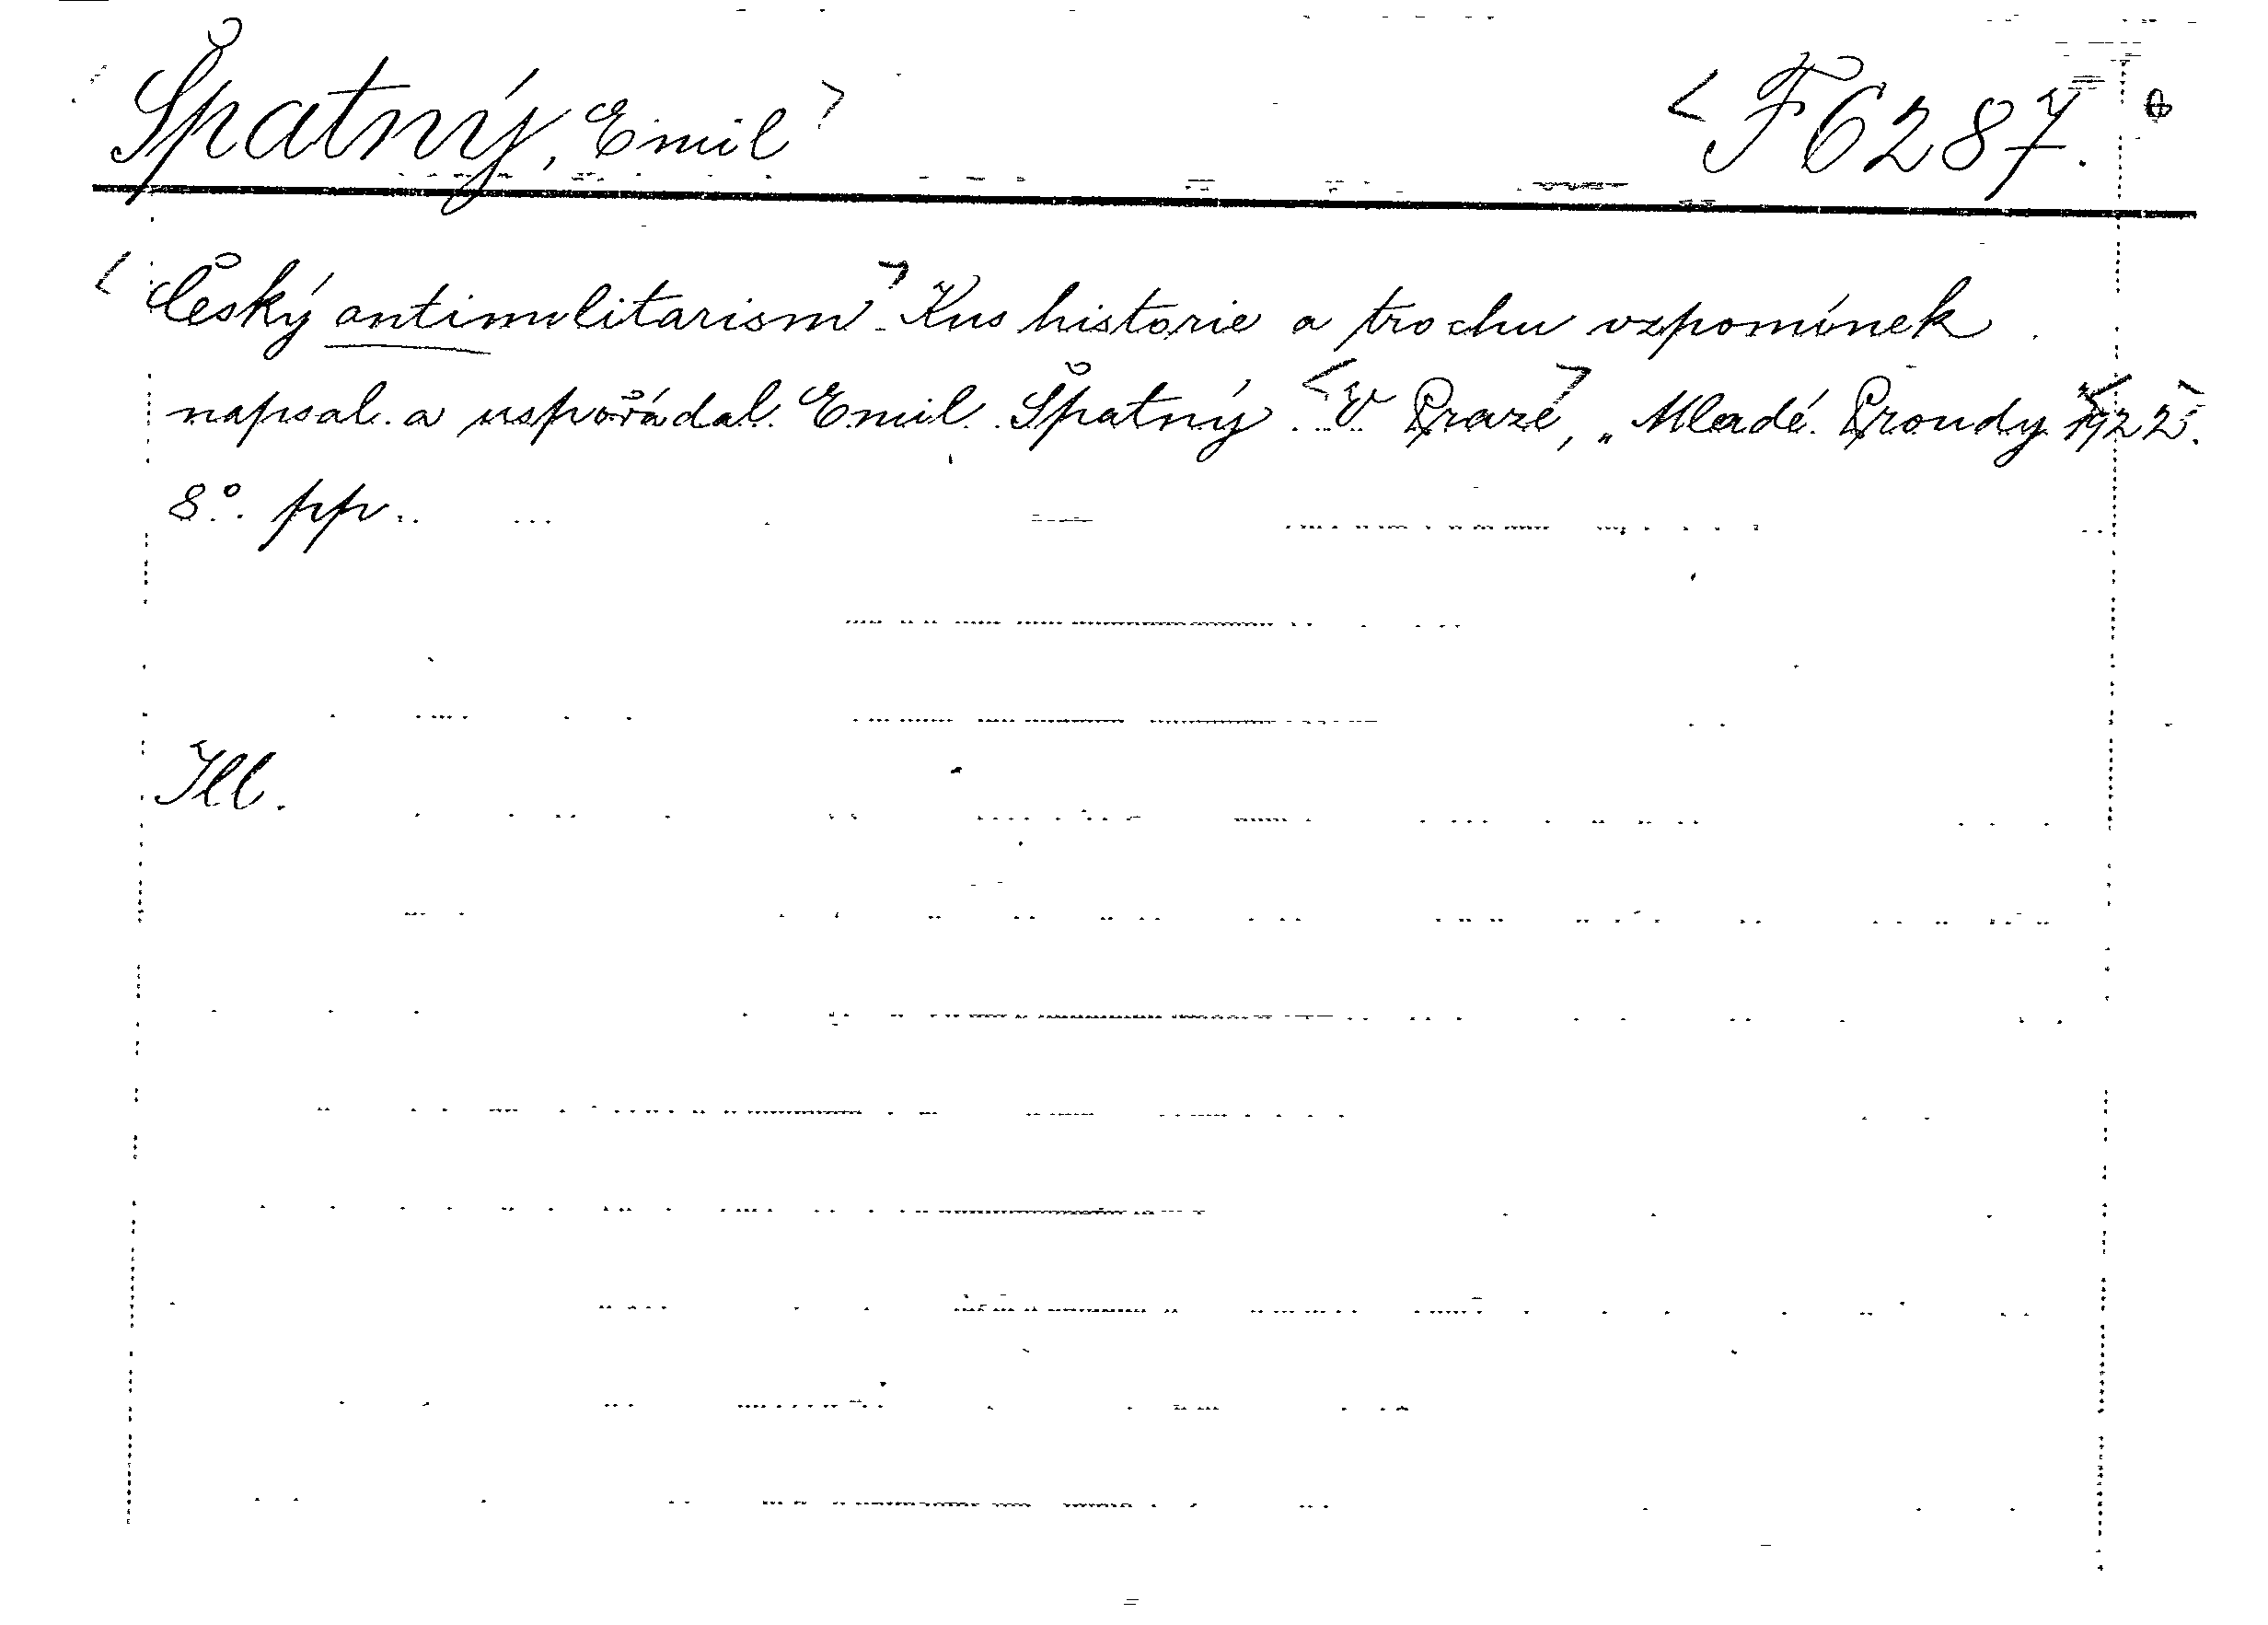 Špatný, Emil > < F 6287.
< Český antimilitarism > Kus historie a trochu vzpomínek.
napsal a uspořádal Emil Špatný. < V Praze >, „Mladé Proudy < 1922 >.
8°. pp.
Ill.